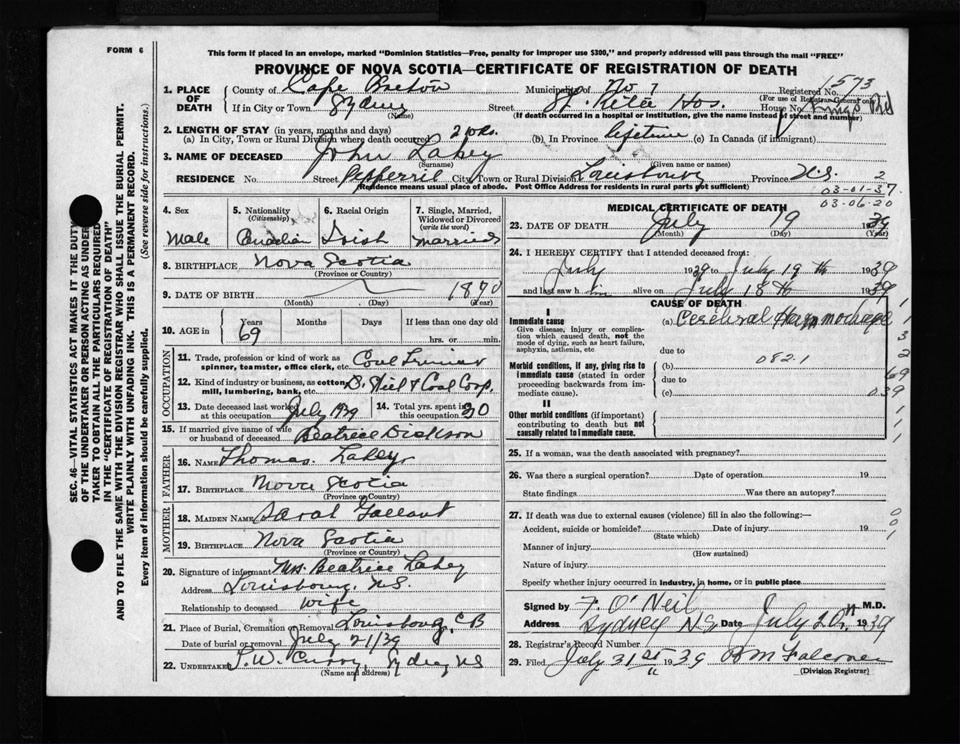 FORM 6
This form if placed in an envelope, marked "Dominion Statistics—Free, penalty for improper use $300," and properly addressed will pass through the mail "FREE"
PROVINCE OF NOVA SCOTIA—CERTIFICATE OF REGISTRATION OF DEATH
1573
1. PLACE OF DEATH { County of Cape Breton Municipality of No 7 Registered No.
(For use of Registrar General only)
If in City or Town Sydney Street St. Rita Hos. House No. Kings Rd
(Name) (If death occurred in a hospital or institution, give the name instead of street and number)
2. LENGTH OF STAY (in years, months and days)
(a) In City, Town or Rural Division where death occurred (b) In Province lifetime (c) In Canada (if immigrant)
3. NAME OF DECEASED John Lahey
(Surname) (Given name or names)
RESIDENCE No. Street Pepperril City, Town or Rural Division Louisbourg Province N.S. 2
(Residence means usual place of abode. Post Office Address for residents in rural parts not sufficient)
03-01-37
03-06-20
4. Sex Male
5. Nationality (Citizenship) Canadian
6. Racial Origin Irish
7. Single, Married, Widowed or Divorced (write the word) Married
8. BIRTHPLACE Nova Scotia
(Province or Country)
9. DATE OF BIRTH 1870
(Month) (Day) (Year)
10. AGE in { Years 69 Months Days If less than one day
hrs. or min.
OCCUPATION
11. Trade, profession or kind of work as spinner, teamster, office clerk, etc. Coal
12. Kind of industry or business, as cotton mill, lumbering, bank, etc. Steel & Coal Corp.
13. Date deceased last worked at this occupation July 1939
14. Total yrs. spent in this occupation 30
15. If married give name of wife or husband of deceased Beatrice Dickson
FATHER
16. NAME Thomas Lahey
17. BIRTHPLACE Nova Scotia
(Province or Country)
MOTHER
18. MAIDEN NAME Sarah Gallant
19. BIRTHPLACE Nova Scotia
(Province or Country)
20. Signature of informant Mrs Beatrice Lahey
Address Louisbourg, N.S.
Relationship to deceased wife
21. Place of Burial, Cremation or Removal Louisbourg, CB
Date of burial or removal July 21/39
22. UNDERTAKER Sydney NS
(Name and address)
MEDICAL CERTIFICATE OF DEATH
23. DATE OF DEATH July 19 1939
(Month) (Day) (Year)
24. I HEREBY CERTIFY that I attended deceased from:
July 1939 to July 19th 1939
and last saw h im alive on July 18th 1939
CAUSE OF DEATH
I
Immediate cause (a) Cerebral Haemmorhage
Give disease, injury or complication which caused death, not the mode of dying, such as heart failure, asphyxia, asthenia, etc
due to
Morbid conditions, if any, giving rise to immediate cause (stated in order proceeding backwards from immediate cause). (b) 082.1
due to
(c)
II
Other morbid conditions (if important) contributing to death but not causally related to immediate cause.
1
3
2
69
039
1
1
1
25. If a woman, was the death associated with pregnancy?
26. Was there a surgical operation? Date of operation 19
State findings Was there an autopsy?
27. If death was due to external causes (violence) fill in also the following:—
Accident, suicide or homicide? Date of injury 19
(State which)
Manner of injury
(How sustained)
Nature of injury
Specify whether injury occurred in industry, in home, or in public place
0
0
1
Signed by F. O'Neil M.D.
Address Sydney NS Date July 20th 1939
28. Registrar's Record Number
29. Filed July 31st 1939 Falconer
(Division Registrar)
SEC. 46—VITAL STATISTICS ACT MAKES IT THE DUTY
OF THE UNDERTAKER OR PERSON ACTING AS UNDERTAKER TO OBTAIN ALL THE PARTICULARS REQUIRED
IN THE "CERTIFICATE OF REGISTRATION OF DEATH"
AND TO FILE THE SAME WITH THE DIVISION REGISTRAR WHO SHALL ISSUE THE BURIAL PERMIT.
WRITE PLAINLY WITH UNFADING INK. THIS IS A PERMANENT RECORD.
Every item of information should be carefully supplied. (See reverse side for instructions.)